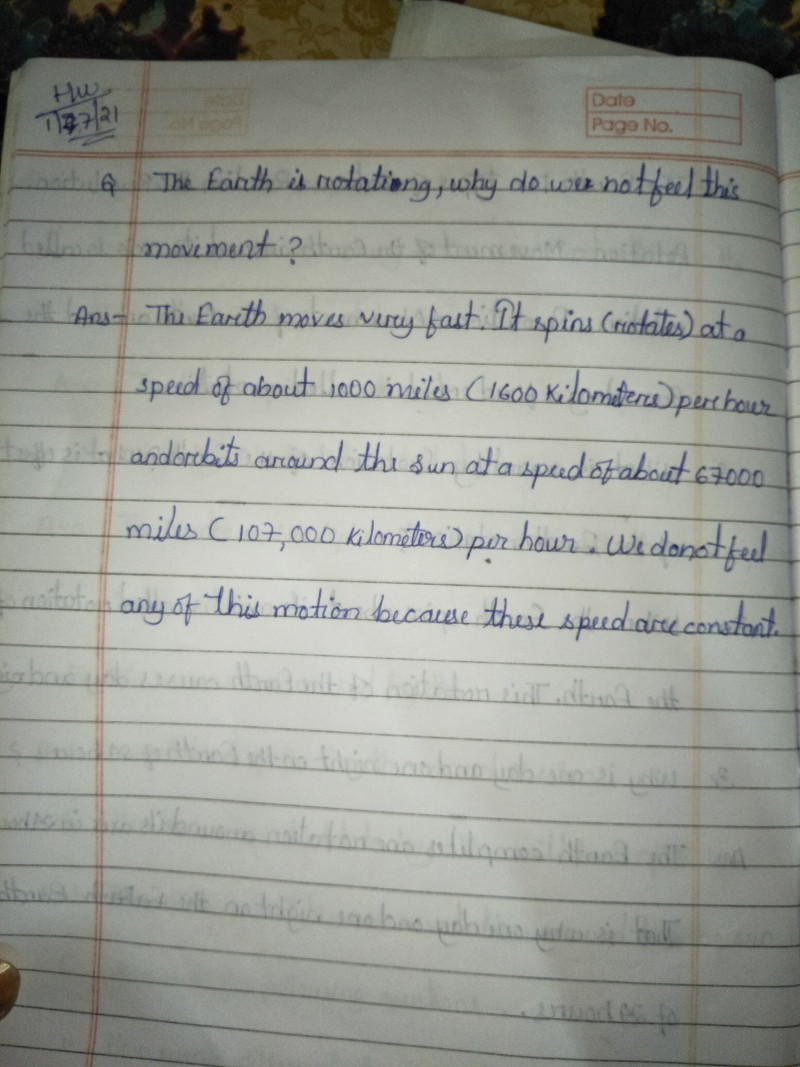 HW
1/7/21
Date
Page No.
Q The Earth is rotating, why do we not feel this
moviment?
Ans- The Earth moves very fast. It spins (rotates) at a
speed of about 1000 miles (1600 Kilometers) per hour
and orbits around the sun at a speed of about 67000
miles (107,000 Kilometers) per hour. We do not feel
any of this motion because these speed are constant.